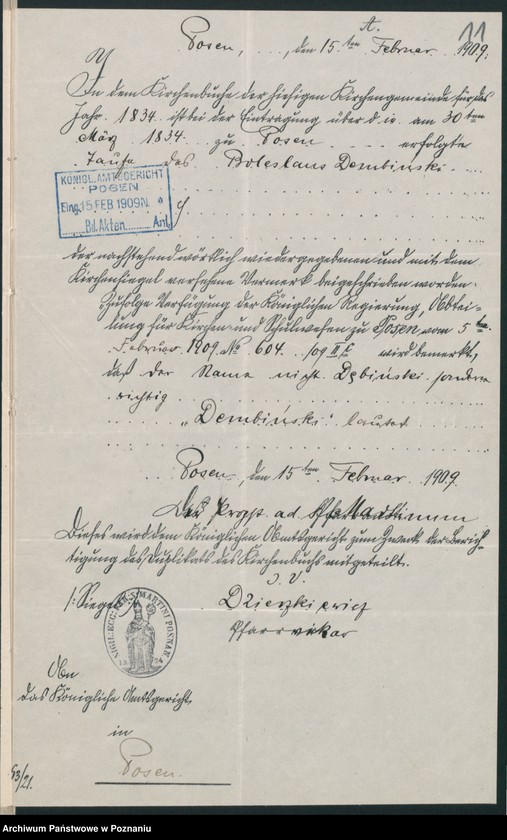 A.
11
Posen, den 15. ten Februar 1909.
In dem Kirchenbuche der hiesigen Kirchengemeinde für das
Jahr 1834 ist bei der Eintragung über d. in am 30 ten
März 1834 zu Posen erfolgte
Taufe des Boleslaus Dembiński
KÖNIGL. AMTSGERICHT
POSEN
Eing. 15. FEB 1909 N.
Bd. Akten Anl.
der nachstehend wörtlich wiedergegebenen und mit dem
Kirchensiegel versehene Vermerk beigeschrieben worden.
Zufolge Verfügung der Königlichen Regierung, Abtei-
lung für Kirchen- und Schulwesen zu Posen vom 5 ten
Februar 1909 No 604. /09 II C wird bemerkt,
daß der Name nicht Dębiński sondern
richtig
„Dembiński“ lautet
Posen, den 15 ten Februar 1909.
ad Martinum
Dieses wird dem Königlichen Amtsgericht zum Zweck der Berich-
tigung des Duplikats des Kirchenbuchs mitgeteilt.
J. V.
/: Siegel
Dzierzkiewicz
Pfarrvikar
SIGIL. ECCL. PAR. S. MARTINI POSNAN.
1824
An
das Königliche Amtsgericht
in
Posen.
53/21.
Archiwum Państwowe w Poznaniu